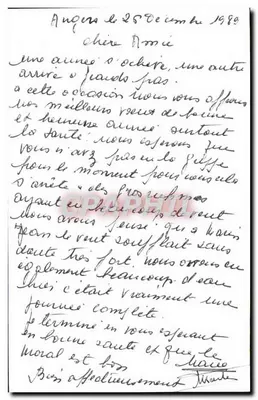 Angers le 26 Décembre 1989
chère Amie
une année s'achève, une autre
arrive à grands pas.
a cette occasion nous vous offrons
nos meilleurs vœux de bonne
et heureuse année, surtout
la santé. nous espérons que
vous n'avez pas eu la grippe
pour le moment pour nous cela
s'arrête à des gros rhumes
ayant eu beaucoup de vent
nous avons pensé qu'à
Jean le vent soufflait sans
doute très fort, nous avons eu
également beaucoup d'eau
hier c'était vraiment une
journée complète.
je termine en vous espérant
en bonne santé et que le
moral est bon
Bien affectueusement